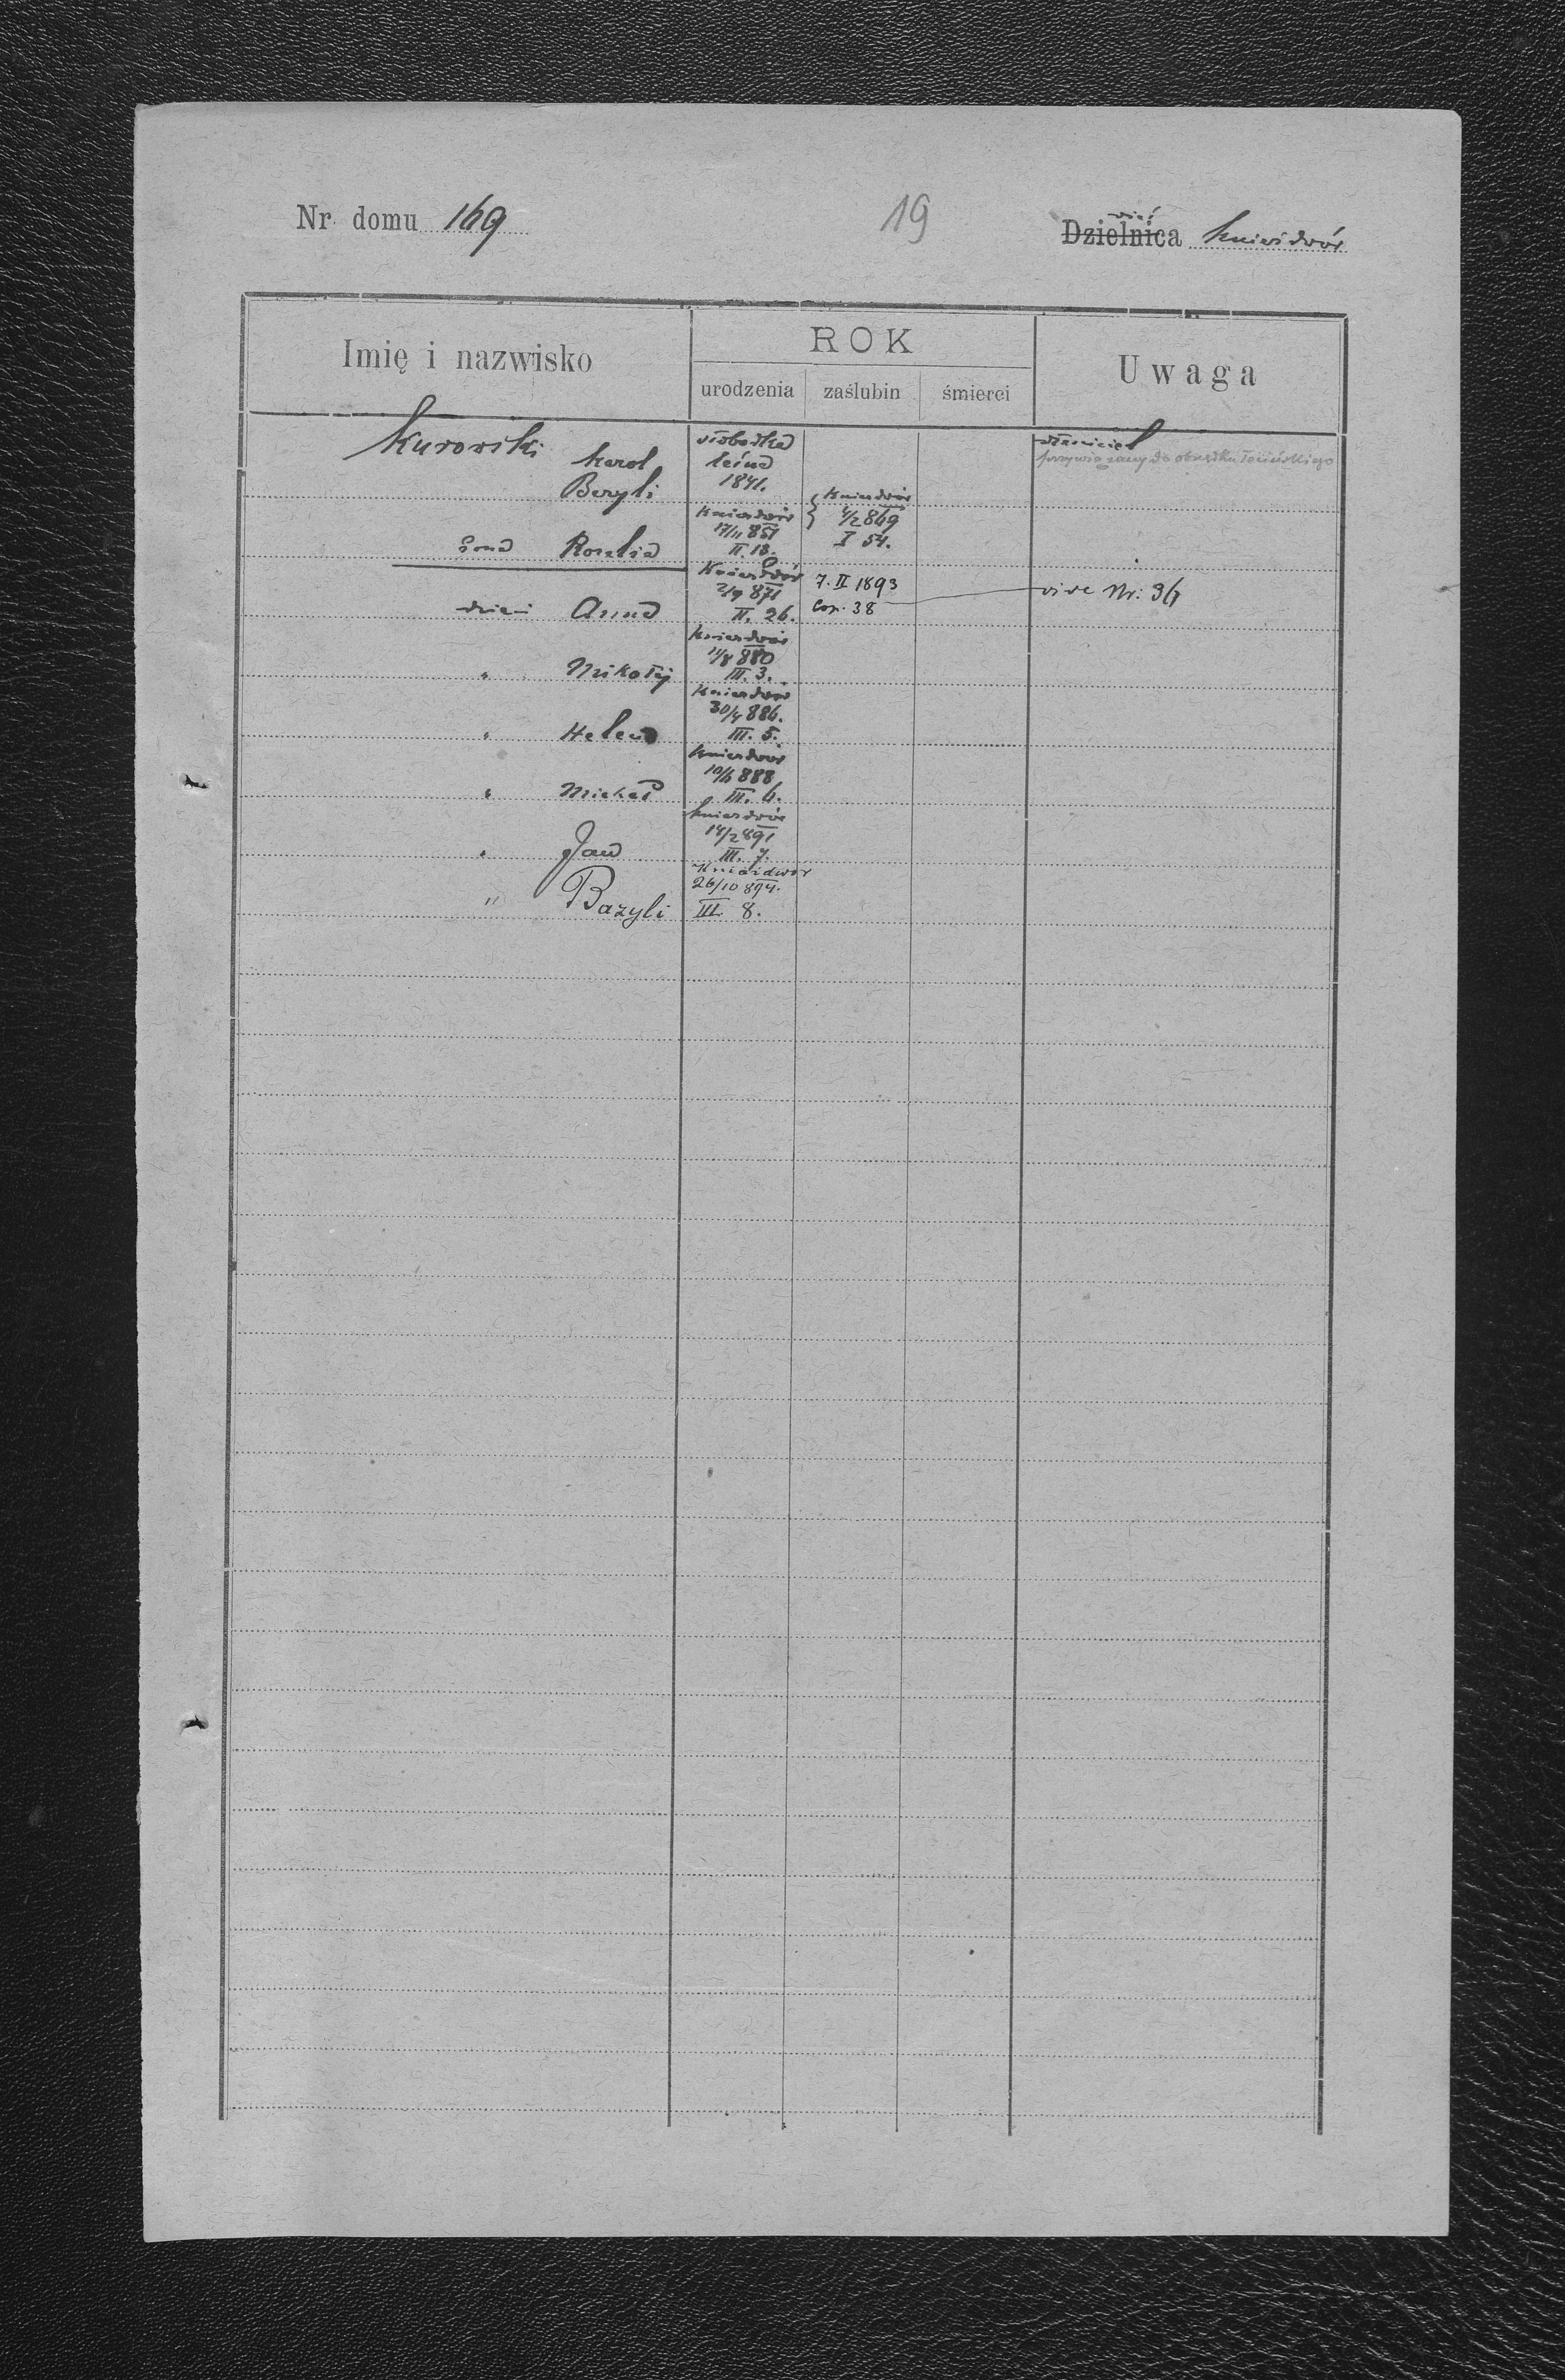 Nr domu 169
19
wieś
Dzielnica Kniaźdwór
Imię i nazwisko
ROK
Uwaga
urodzenia zaślubin śmierci
Kurowski Karol
Bazyli
Słobodka
leśna
1841.
właściciel
przywiązany do obrządku łacińskiego
żona Rozalia
Kniaźdwór
17/11 851
II. 18.
Kniaźdwór
4/2 869
I 54.
dzieci Anna
Kniaźdwór
2/9 871
II. 26.
7. II 1893
Cop. 38
vide Nr.
" Mikołaj
Kniaźdwór
11/8 880
III. 3.
" Helena
Kniaźdwór
30/4 886.
III. 5.
" Michał
Kniaźdwór
888
III. 6.
" Jan
Kniaźdwór
14/2 891
III. 7.
" Bazyli
Kniaźdwór
26/10 894.
III 8.